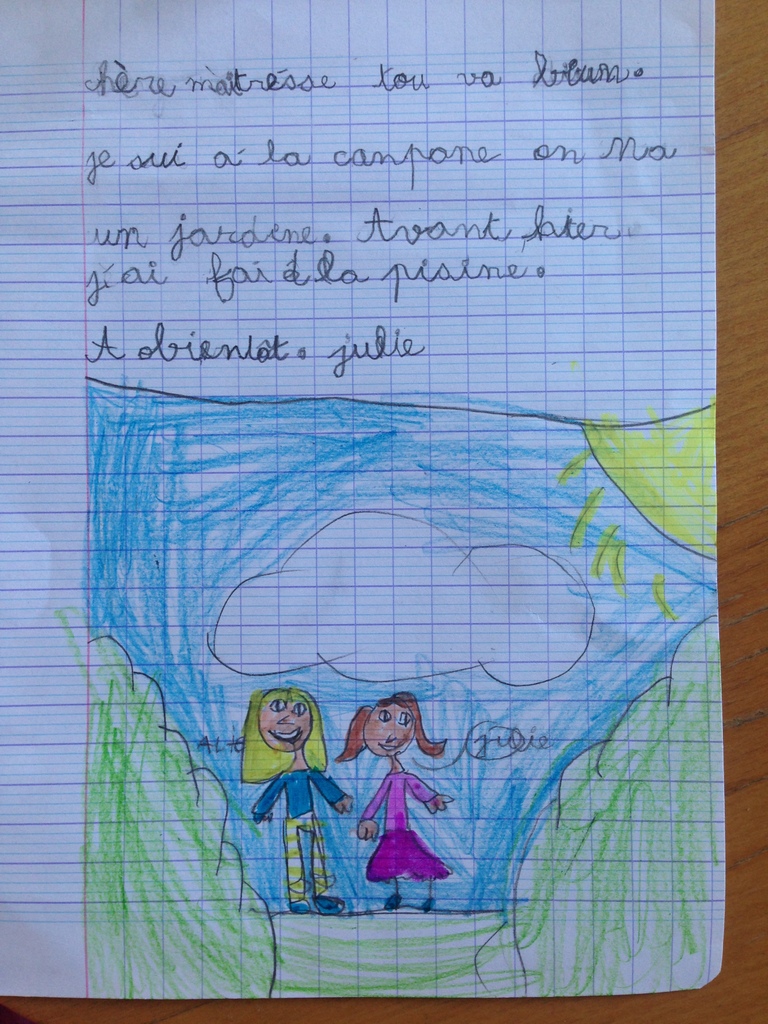 chère maitrésse tou va bieun.
je sui a la canpane on na
un jardene. Avant hier
j'ai fai de la pisine.
A bientôt. julie
ALIC julie